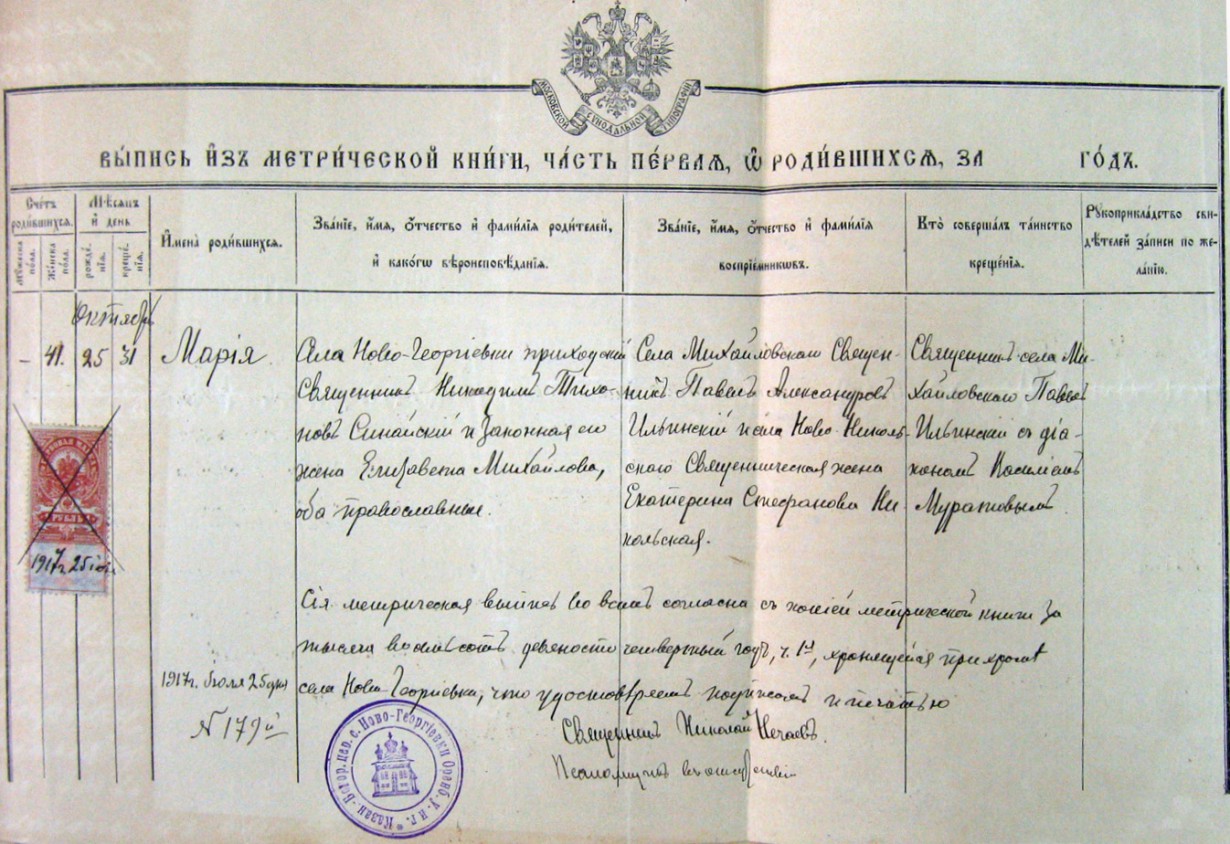 МОСКОВСКОЙ СѴНОДАЛЬНОЙ ТИПОГРАФІИ
ВЫ́ПИСЬ И҆ЗЪ МЕТРИ́ЧЕСКОЙ КНИ́ГИ, ЧА́СТЬ ПЕ́РВАѦ, Ѡ҆ РОДИ́ВШИХСѦ, ЗА ГО́ДЪ.
Сче́тъ роди́вшихсѧ.
Му́жеска по́ла.
Же́нска по́ла.
Мѣ́сѧцъ и҆ де́нь
рожде́нїѧ.
креще́нїѧ.
И҆мена̀ роди́вшихсѧ.
Зва́нїе, и҆́мѧ, ѻ҆́тчество и҆ фами́лїѧ роди́телей,
и҆ како́гѡ вѣроисповѣ́данїѧ.
Зва́нїе, и҆́мѧ, ѻ҆́тчество и҆ фами́лїѧ
воспрїе́мникѡвъ.
Кто̀ соверша́лъ та́инство
креще́нїѧ.
Рꙋкоприкла́дство сви-
дѣ́телей за́писи по же-
ла́нїю.
Октября
– 41. 25 31
Марія
Села Ново-Георгіевки приходскій
Священникъ Никодимъ Тихо-
новъ Синайскій и законная его
жена Елизавета Михайлова,
оба православные.
Села Михайловскаго Священ-
никъ Павелъ Александровъ
Ильинскій и села Ново-Николь-
скаго Священническая жена
Екатерина Стефанова Ни-
кольская.
Священникъ села Ми-
хайловскаго Павелъ
Ильинскій съ діа-
кономъ Василіемъ
Муратовымъ
РУБЛЬ
1917 г. 25 іюл.
Сія метрическая выпись во всемъ согласна съ копіей метрической книги за
тысяча восемьсотъ девяносто четвертый годъ, ч. 1я, хранящейся при храмѣ
села Ново-Георгіевки, что удостовѣряемъ подписомъ и печатью
1917 г. Іюля 25 дня
№ 179й
Священникъ Николай Нечаевъ.
Псаломщикъ
Казан.-Богор. цер. с. Ново-Георгіевки Оренб. у. и г.